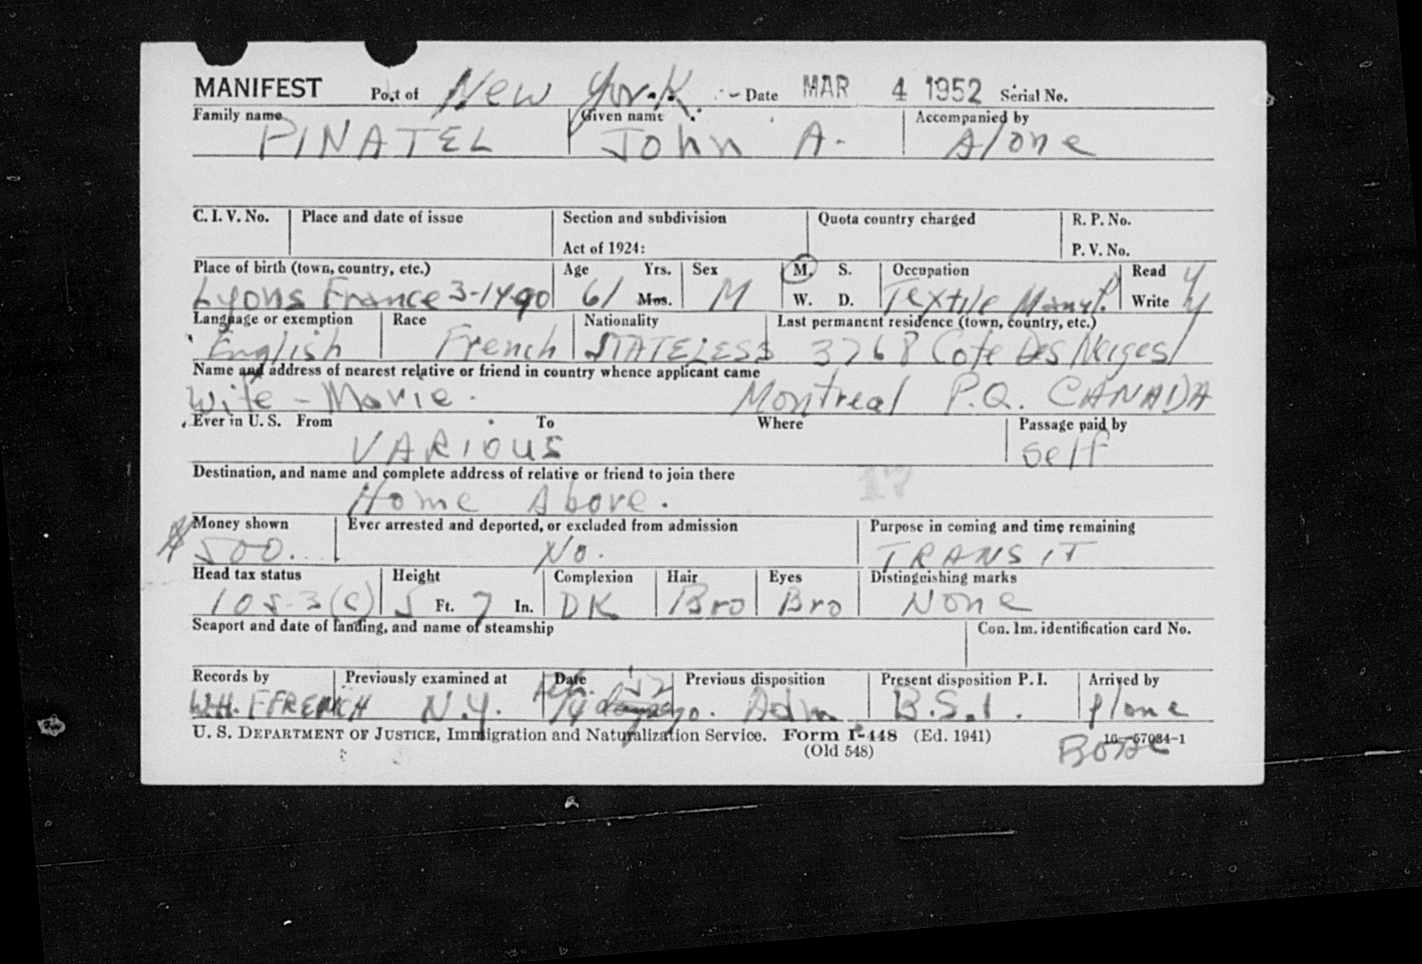 MANIFEST Port of New York. Date MAR 4 1952 Serial No.
Family name Given name Accompanied by
PINATEL John A. Alone
C. I. V. No. Place and date of issue Section and subdivision Quota country charged R. P. No.
Act of 1924: P. V. No.
Place of birth (town, country, etc.) Age Yrs. Sex M. S. Occupation Read y
Lyons France 3-14-90 61 Mos. M W. D. Textile Manuf. Write y
Language or exemption Race Nationality Last permanent residence (town, country, etc.)
English French STATELESS 3768 Cote Des Neiges
Name and address of nearest relative or friend in country whence applicant came
Wife - Marie. Montreal P.Q. CANADA
Ever in U. S. From To Where Passage paid by
VARIOUS Self
Destination, and name and complete address of relative or friend to join there
Home Above. 17
Money shown Ever arrested and deported, or excluded from admission Purpose in coming and time remaining
$500. No. TRANSIT
Head tax status Height Complexion Hair Eyes Distinguishing marks
105-3(c) 5 Ft. 7 In. DK Bro Bro None
Seaport and date of landing, and name of steamship Con. Im. identification card No.
Records by Previously examined at Date Previous disposition Present disposition P. I. Arrived by
WH. FFRENCH N.Y. '52 14 days ago. Adm B.S.I. plane
U. S. DEPARTMENT OF JUSTICE, Immigration and Naturalization Service. Form I-448 (Ed. 1941) 16—57084-1
(Old 548)